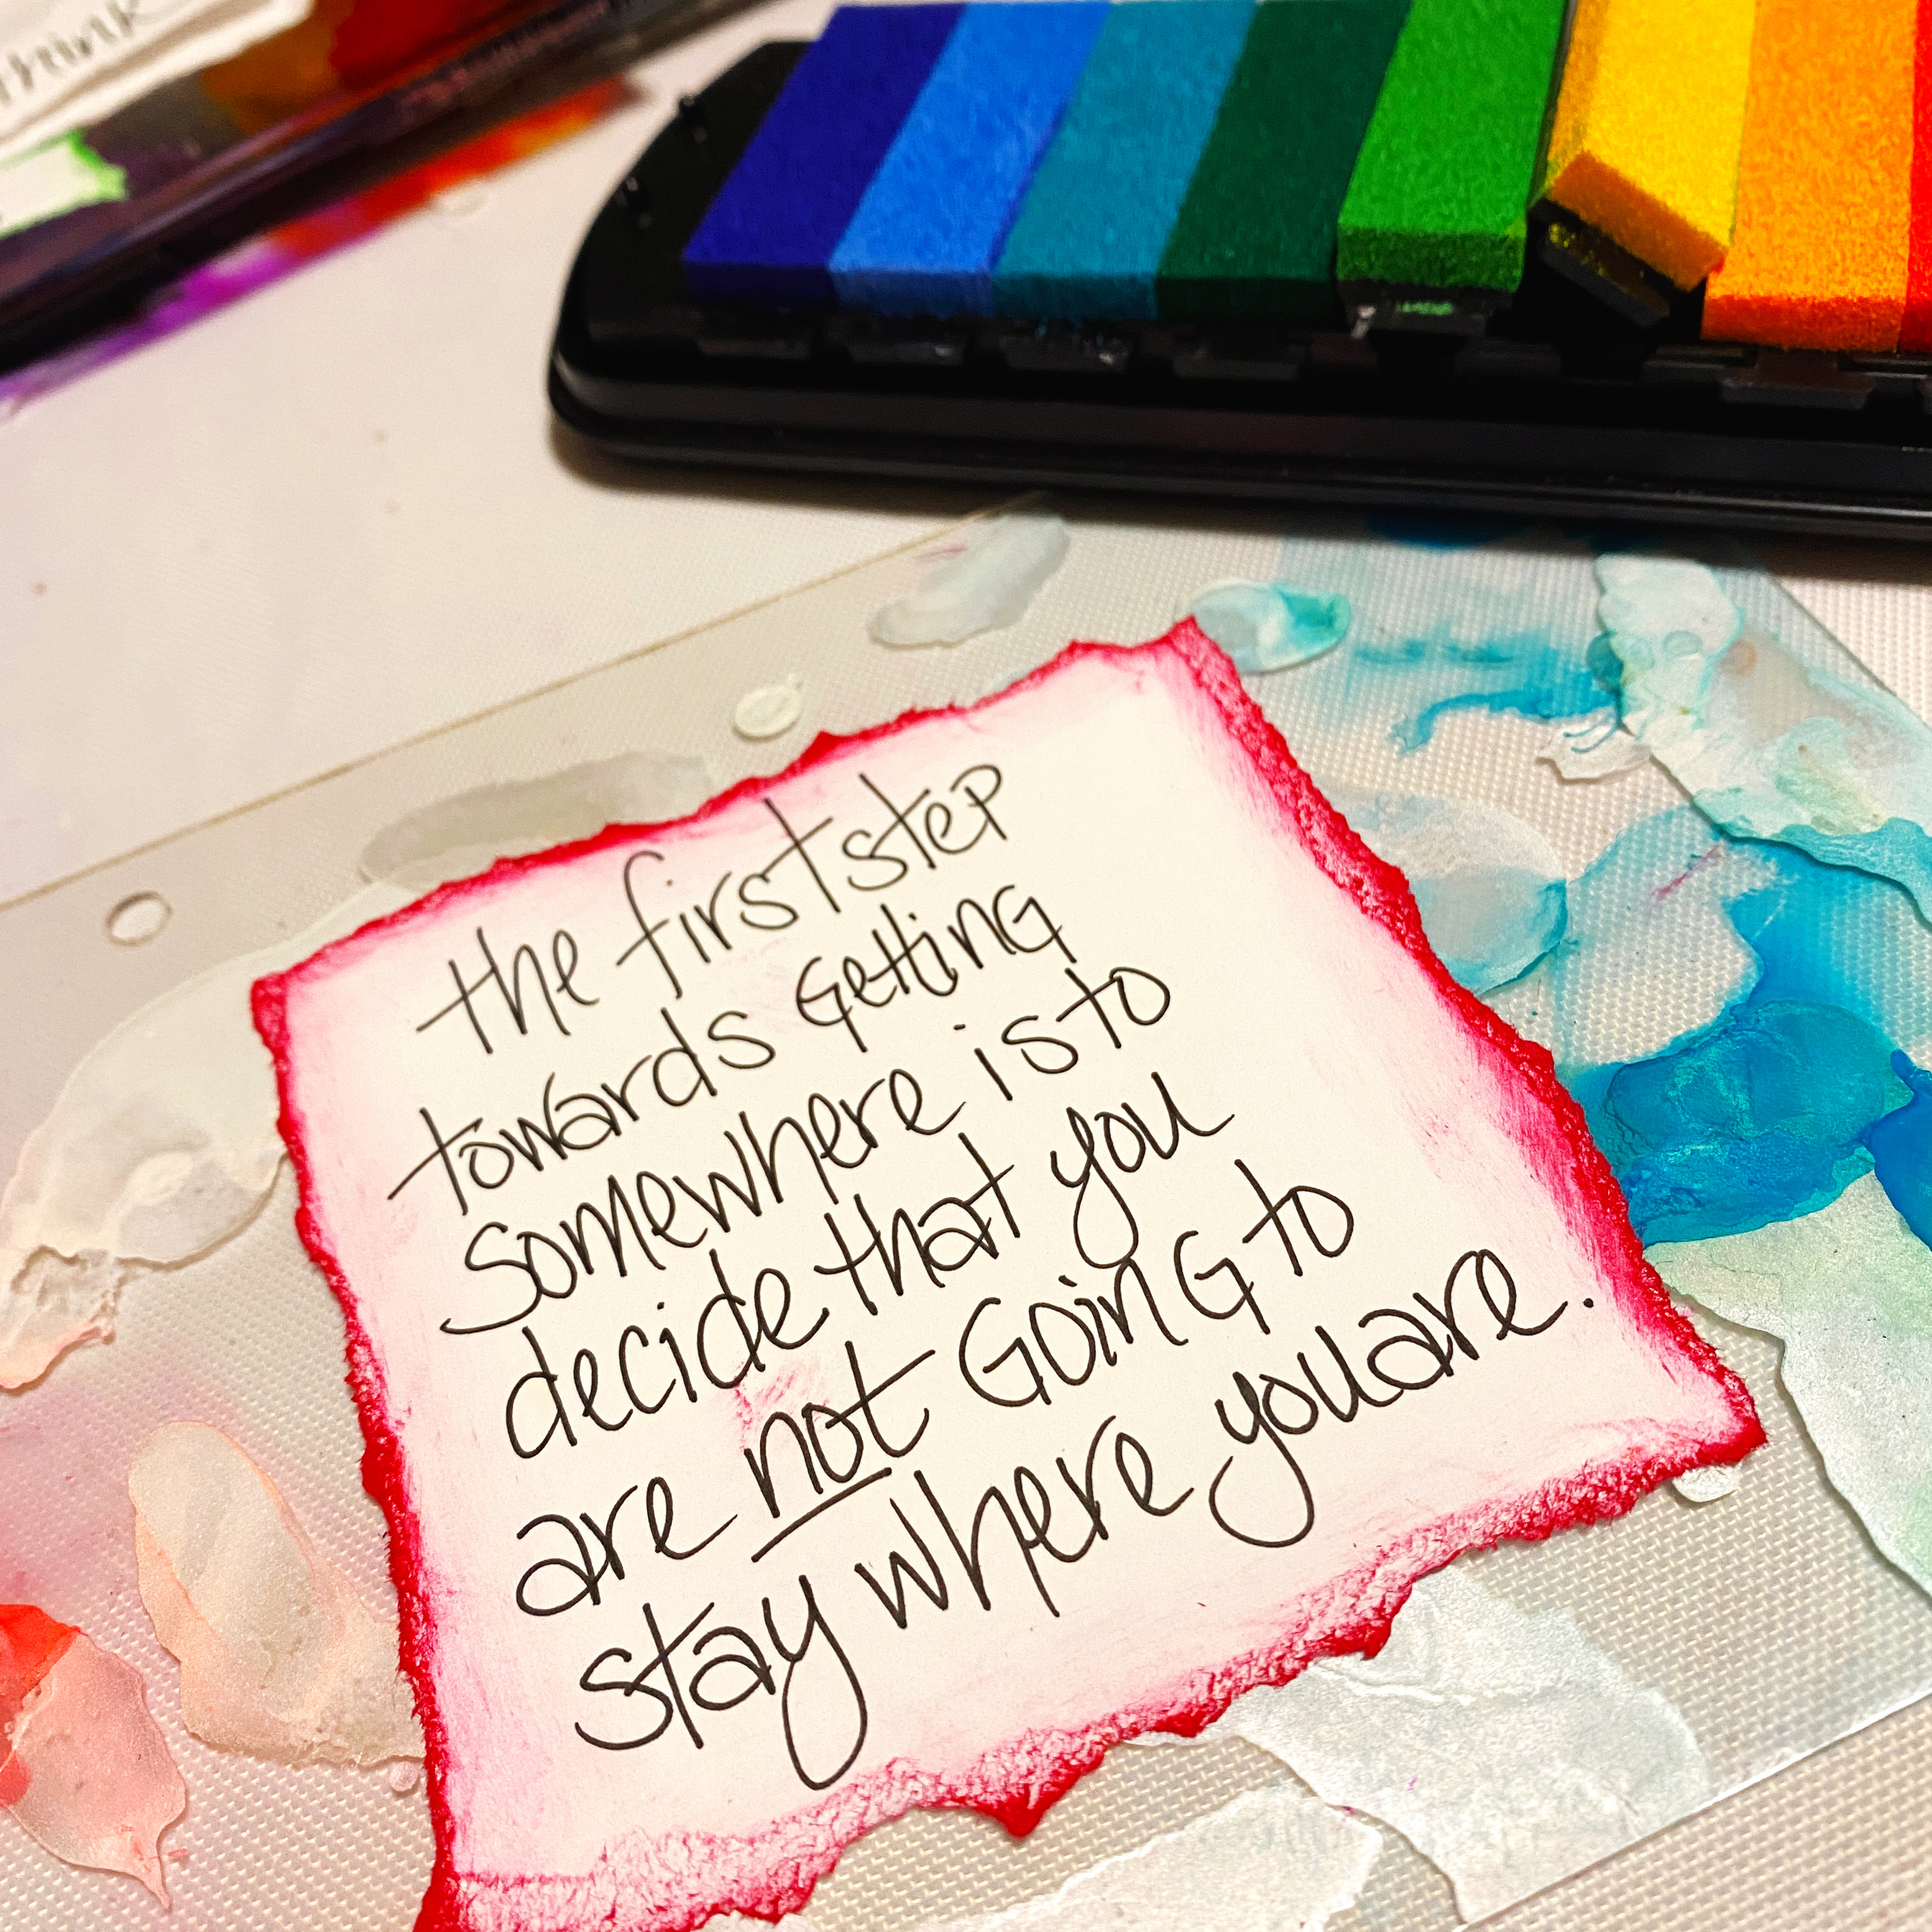 think
the first step
towards GettinG
somewhere is to
decide that you
are not GoinG to
stay where you are.